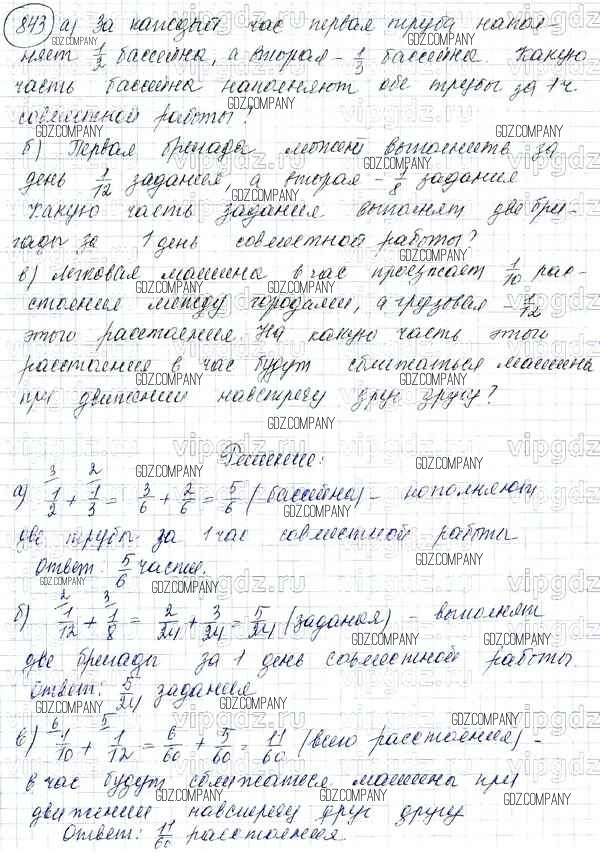 843 а) За каждый час первая труба напол-
няет 1/2 бассейна, а вторая - 1/3 бассейна. Какую
часть бассейна наполняют обе трубы за 1 ч
совместной работы?
б) Первая бригада может выполнить за
день 1/12 задания, а вторая - 1/8 задания
Какую часть задания выполнят две бри-
гады за 1 день совместной работы?
в) Легковая машина в час проезжает 1/10 рас-
стояния между городами, а грузовая - 1/12
этого расстояния. На какую часть этого
расстояния в час будут сближаться машины
при движении навстречу друг другу?
Решение:
3 2
а) 1/2 + 1/3 = 3/6 + 2/6 = 5/6 (бассейна) - наполняют
две трубы за 1 час совместной работы
Ответ: 5/6 части.
2 3
б) 1/12 + 1/8 = 2/24 + 3/24 = 5/24 (задания) - выполнят
две бригады за 1 день совместной работы.
Ответ: 5/24 задания
6 5
в) 1/10 + 1/12 = 6/60 + 5/60 = 11/60 (всего расстояния) -
в час будут сближаться машины при
движении навстречу друг другу
Ответ: 11/60 расстояния